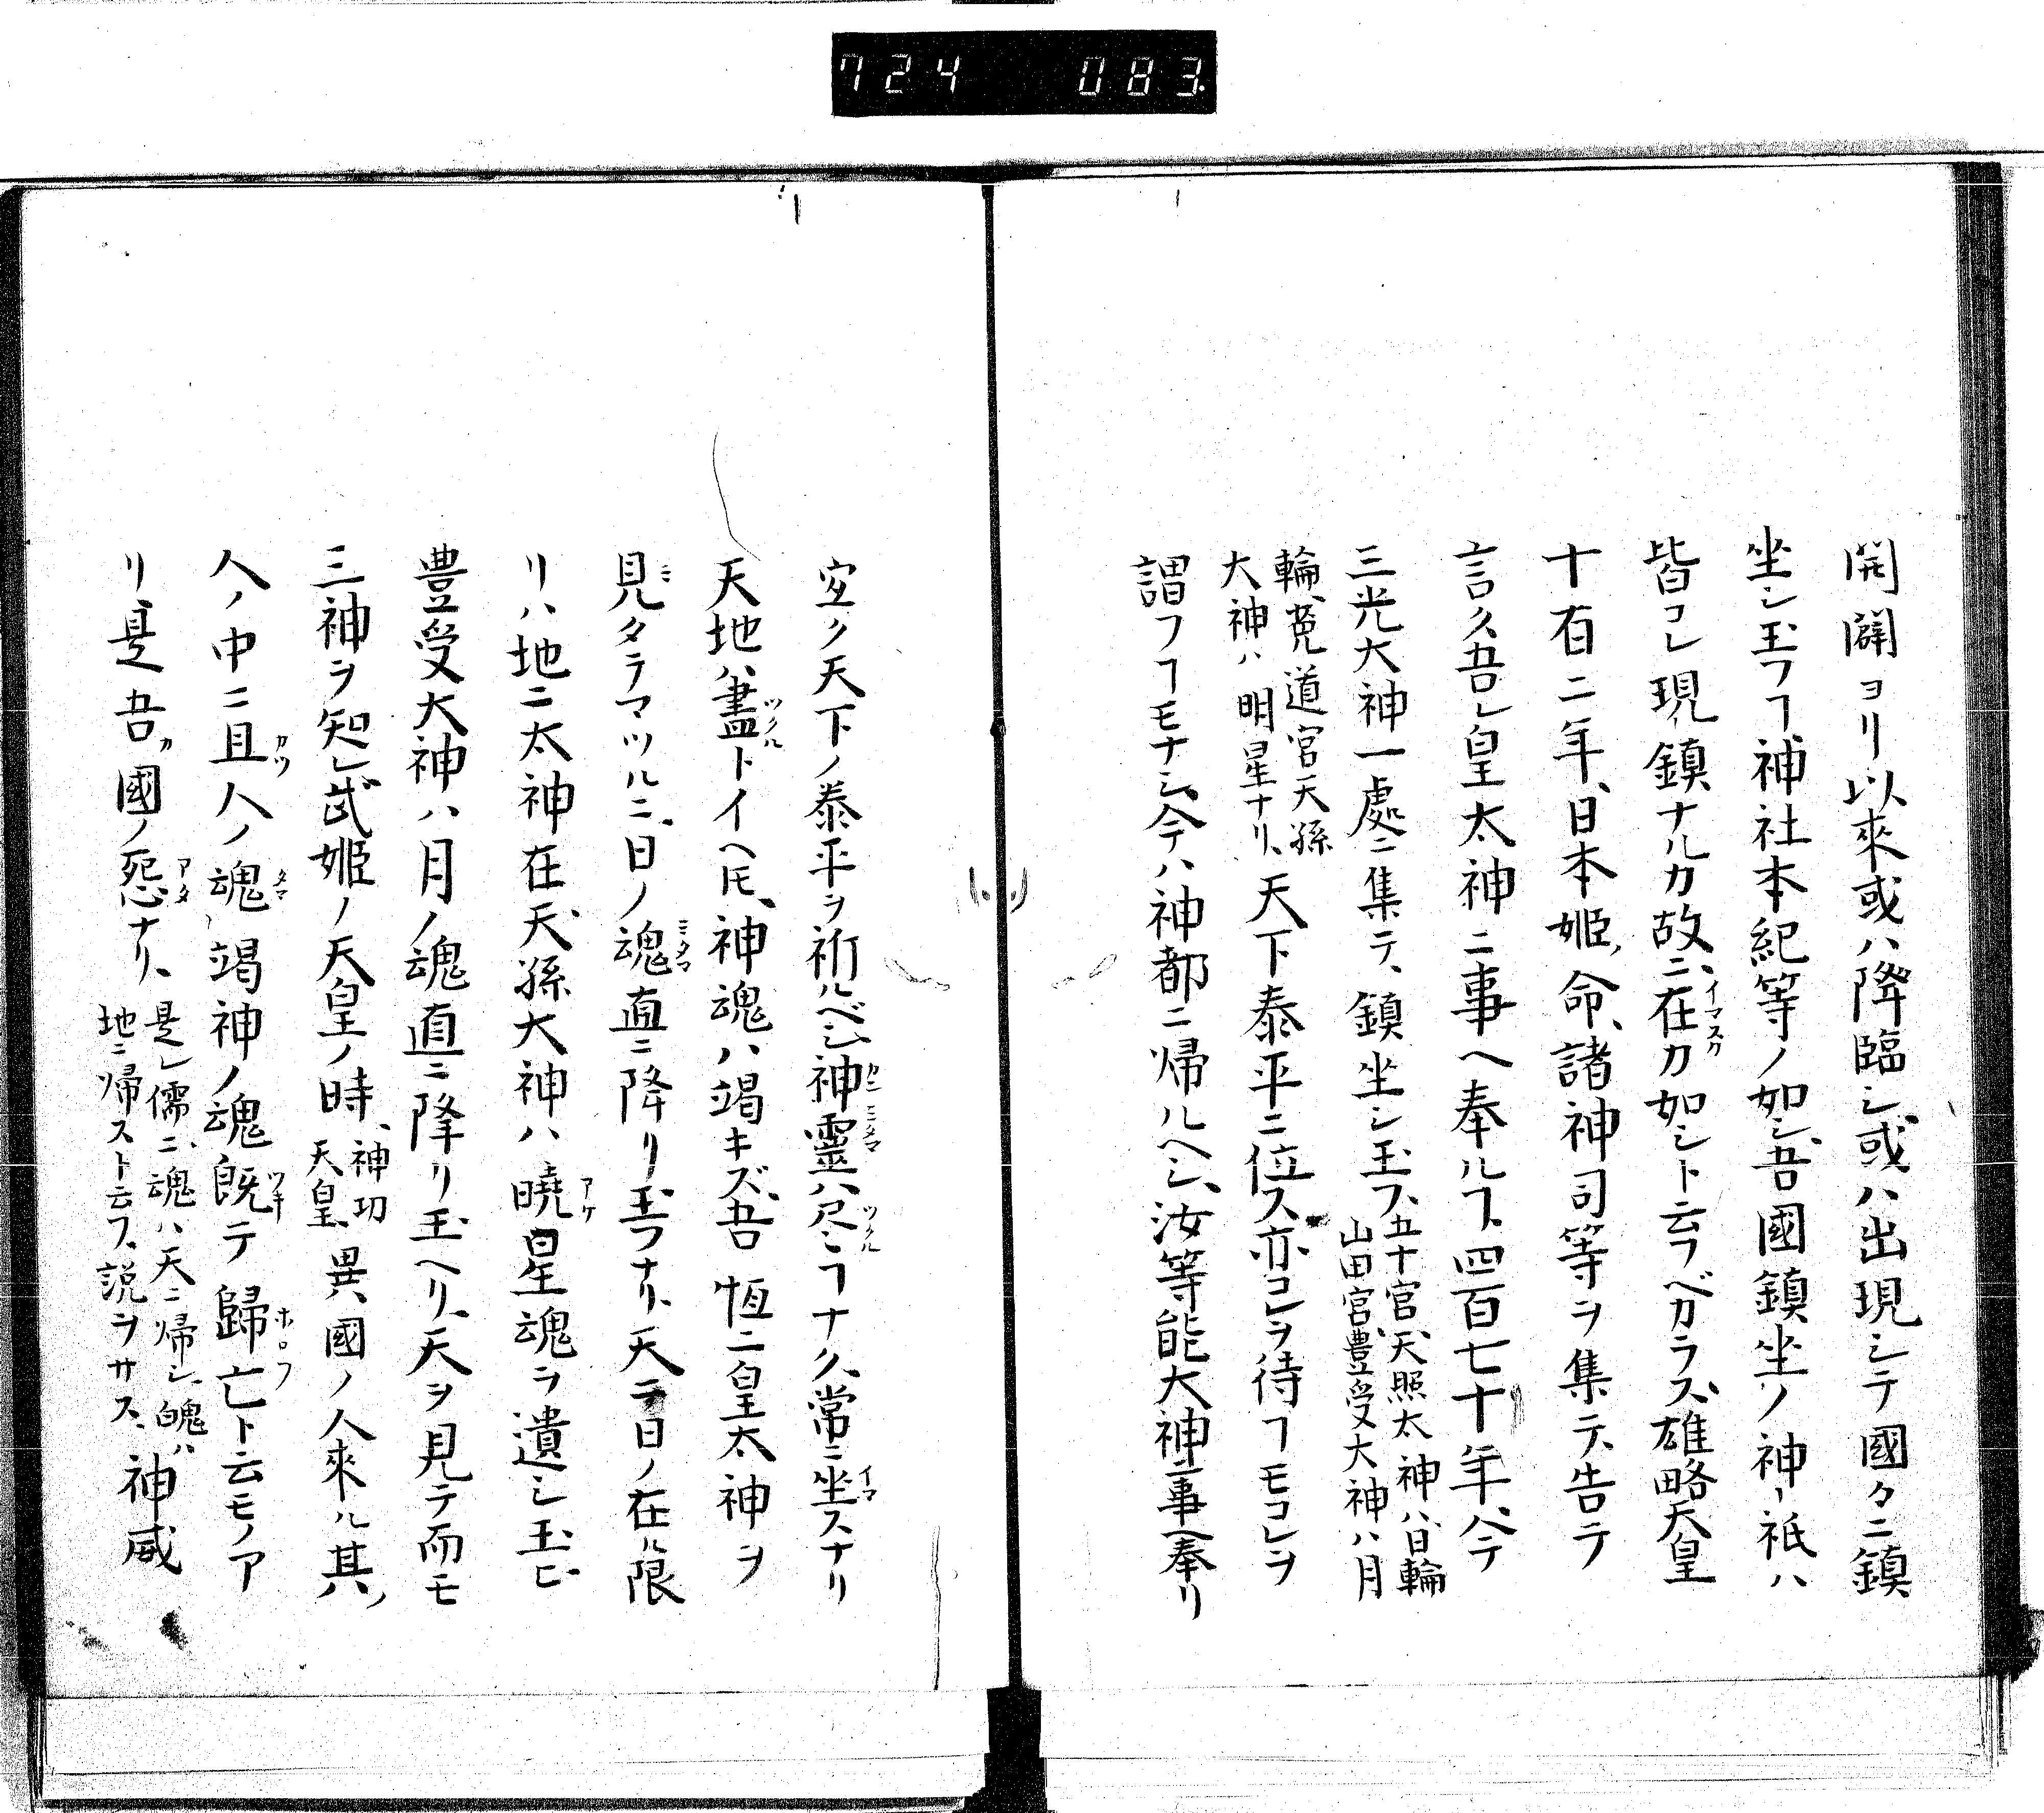 724 083.
開闢ヨリ以來或ハ降臨シ、或ハ出現シテ國々ニ鎮
坐シ玉フヿ、神社本紀等ノ如シ、吾國鎮坐ノ神祇ハ
皆コレ現鎮ナルカ故ニ、在カ如シト云フベカラズ、雄略天皇
イマスク
十有二年、日本姫命、諸神司等ヲ集テ、告テ
言ク、吾レ皇太神ニ事ヘ奉ルヿ、四百七十年、今
三光大神一處ニ集テ、鎮坐シ玉フ、
五十宮、天照太神ハ、日輪
山田宮、豊受大神ハ月
輪、菟道宮天孫
大神ハ明星ナリ、
天下泰平ニ位ス、亦コレヲ待ヿモコレヲ
謂フヿモナシ、今ハ神都ニ帰ルヘシ、汝等能大神ニ事ヘ奉リ
空ク天下ノ泰平ヲ祈ルベシ、神靈ハ尽ヿナク、常ニ坐スナリ
カンミタマ ツクル イマ
天地ハ盡トイヘㇳモ、神魂ハ竭キズ、吾恒ニ皇太神ヲ
ツクル
見タテマツルニ、日ノ魂直ニ降リ玉フナリ、天ニ日ノ在ル限
ミ ミタマ
リハ地ニ太神在、天孫大神ハ、曉星魂ヲ遺シ玉ヒ、
アケ
豊受大神ハ月ノ魂直ニ降リ玉ヘリ、天ヲ見テ而モ
三神ヲ知レ、武姫ノ天皇ノ時、
神功
天皇、
異國ノ人來ル、其
人ノ中ニ且人ノ魂竭神ノ魂既テ歸亡ト云モノア
カツ タマ ツキ ホロフ
リ、是吾カ國ノ怨ナリ、
アタ
是レ儒ニ、魂ハ天ニ帰シ、魄ハ
地ニ帰スト云フ、説ヲサス、
神威